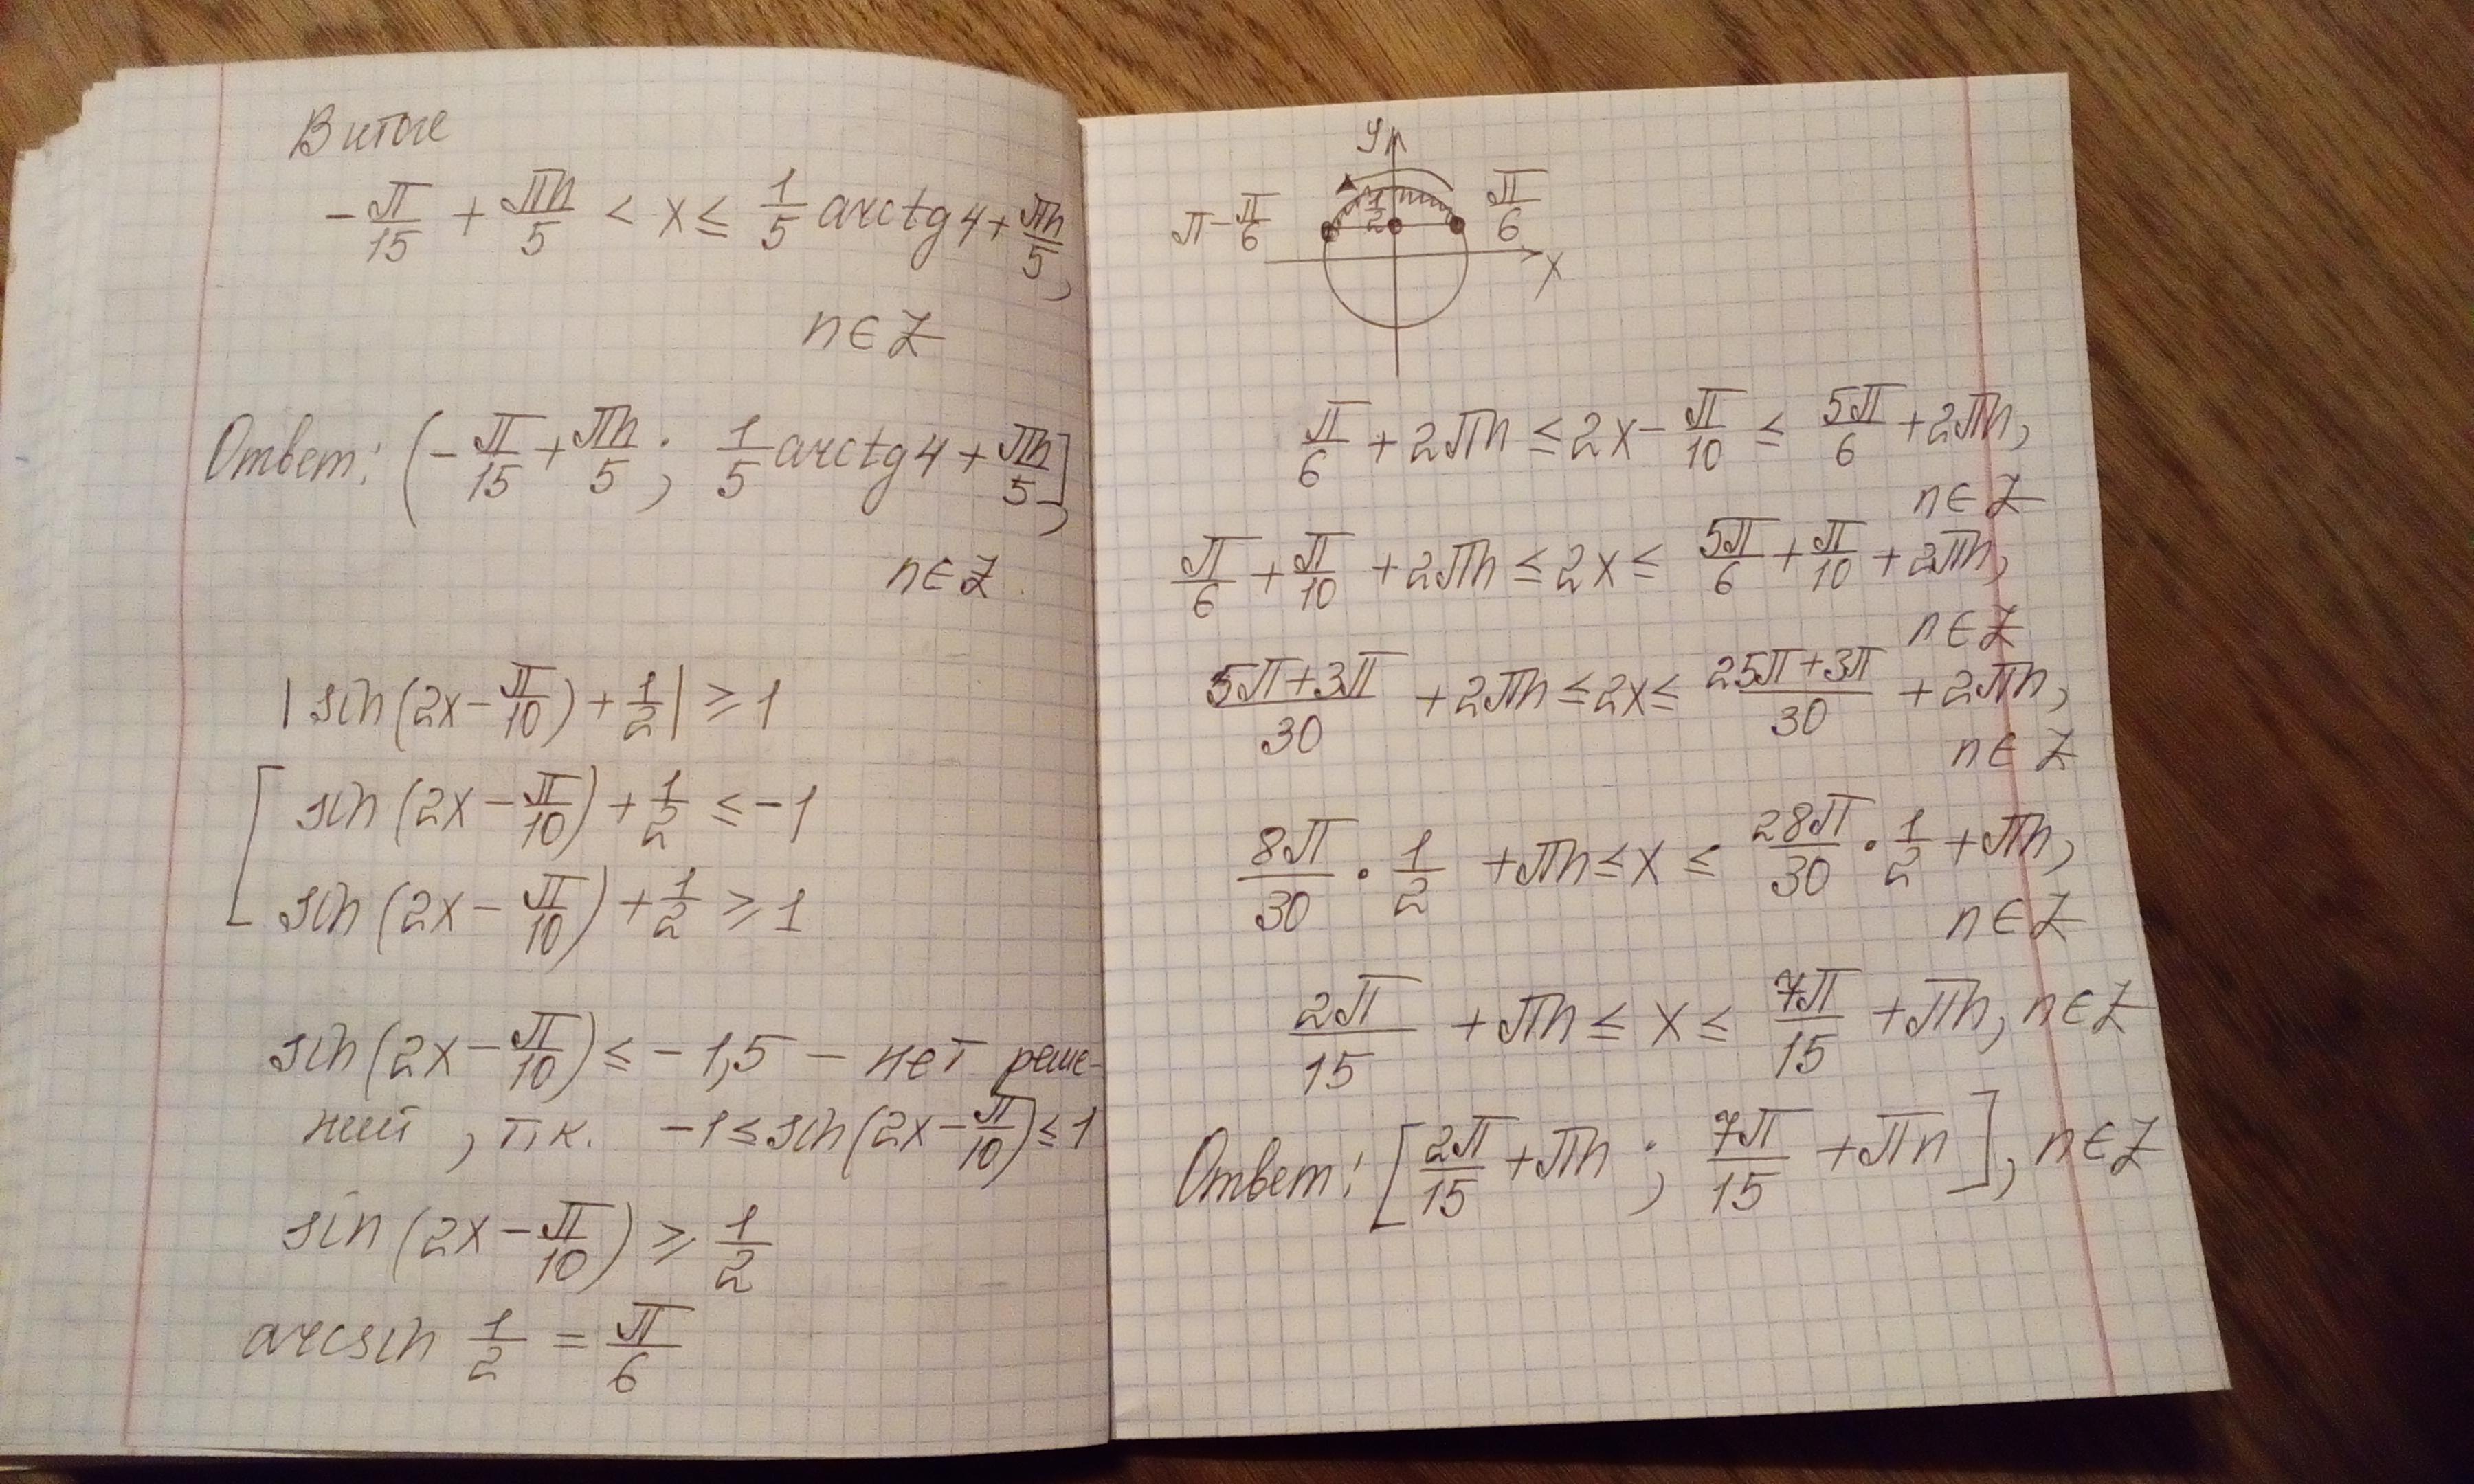 В итоге
-π/15 + πn/5 < x ≤ 1/5 arctg 4 + πn/5,
n ∈ Z
Ответ: (-π/15 + πn/5; 1/5 arctg 4 + πn/5],
n ∈ Z.
|sin(2x - π/10) + 1/2| ≥ 1
[ sin(2x - π/10) + 1/2 ≤ -1
sin(2x - π/10) + 1/2 ≥ 1
sin(2x - π/10) ≤ -1,5 - нет реше-
ний, т.к. -1 ≤ sin(2x - π/10) ≤ 1
sin(2x - π/10) ≥ 1/2
arcsin 1/2 = π/6
y
π - π/6 1/2 π/6
x
π/6 + 2πn ≤ 2x - π/10 ≤ 5π/6 + 2πn,
n ∈ Z
π/6 + π/10 + 2πn ≤ 2x ≤ 5π/6 + π/10 + 2πn,
n ∈ Z
(5π+3π)/30 + 2πn ≤ 2x ≤ (25π+3π)/30 + 2πn,
n ∈ Z
8π/30 · 1/2 + πn ≤ x ≤ 28π/30 · 1/2 + πn,
n ∈ Z
2π/15 + πn ≤ x ≤ 7π/15 + πn, n ∈ Z
Ответ: [2π/15 + πn; 7π/15 + πn], n ∈ Z